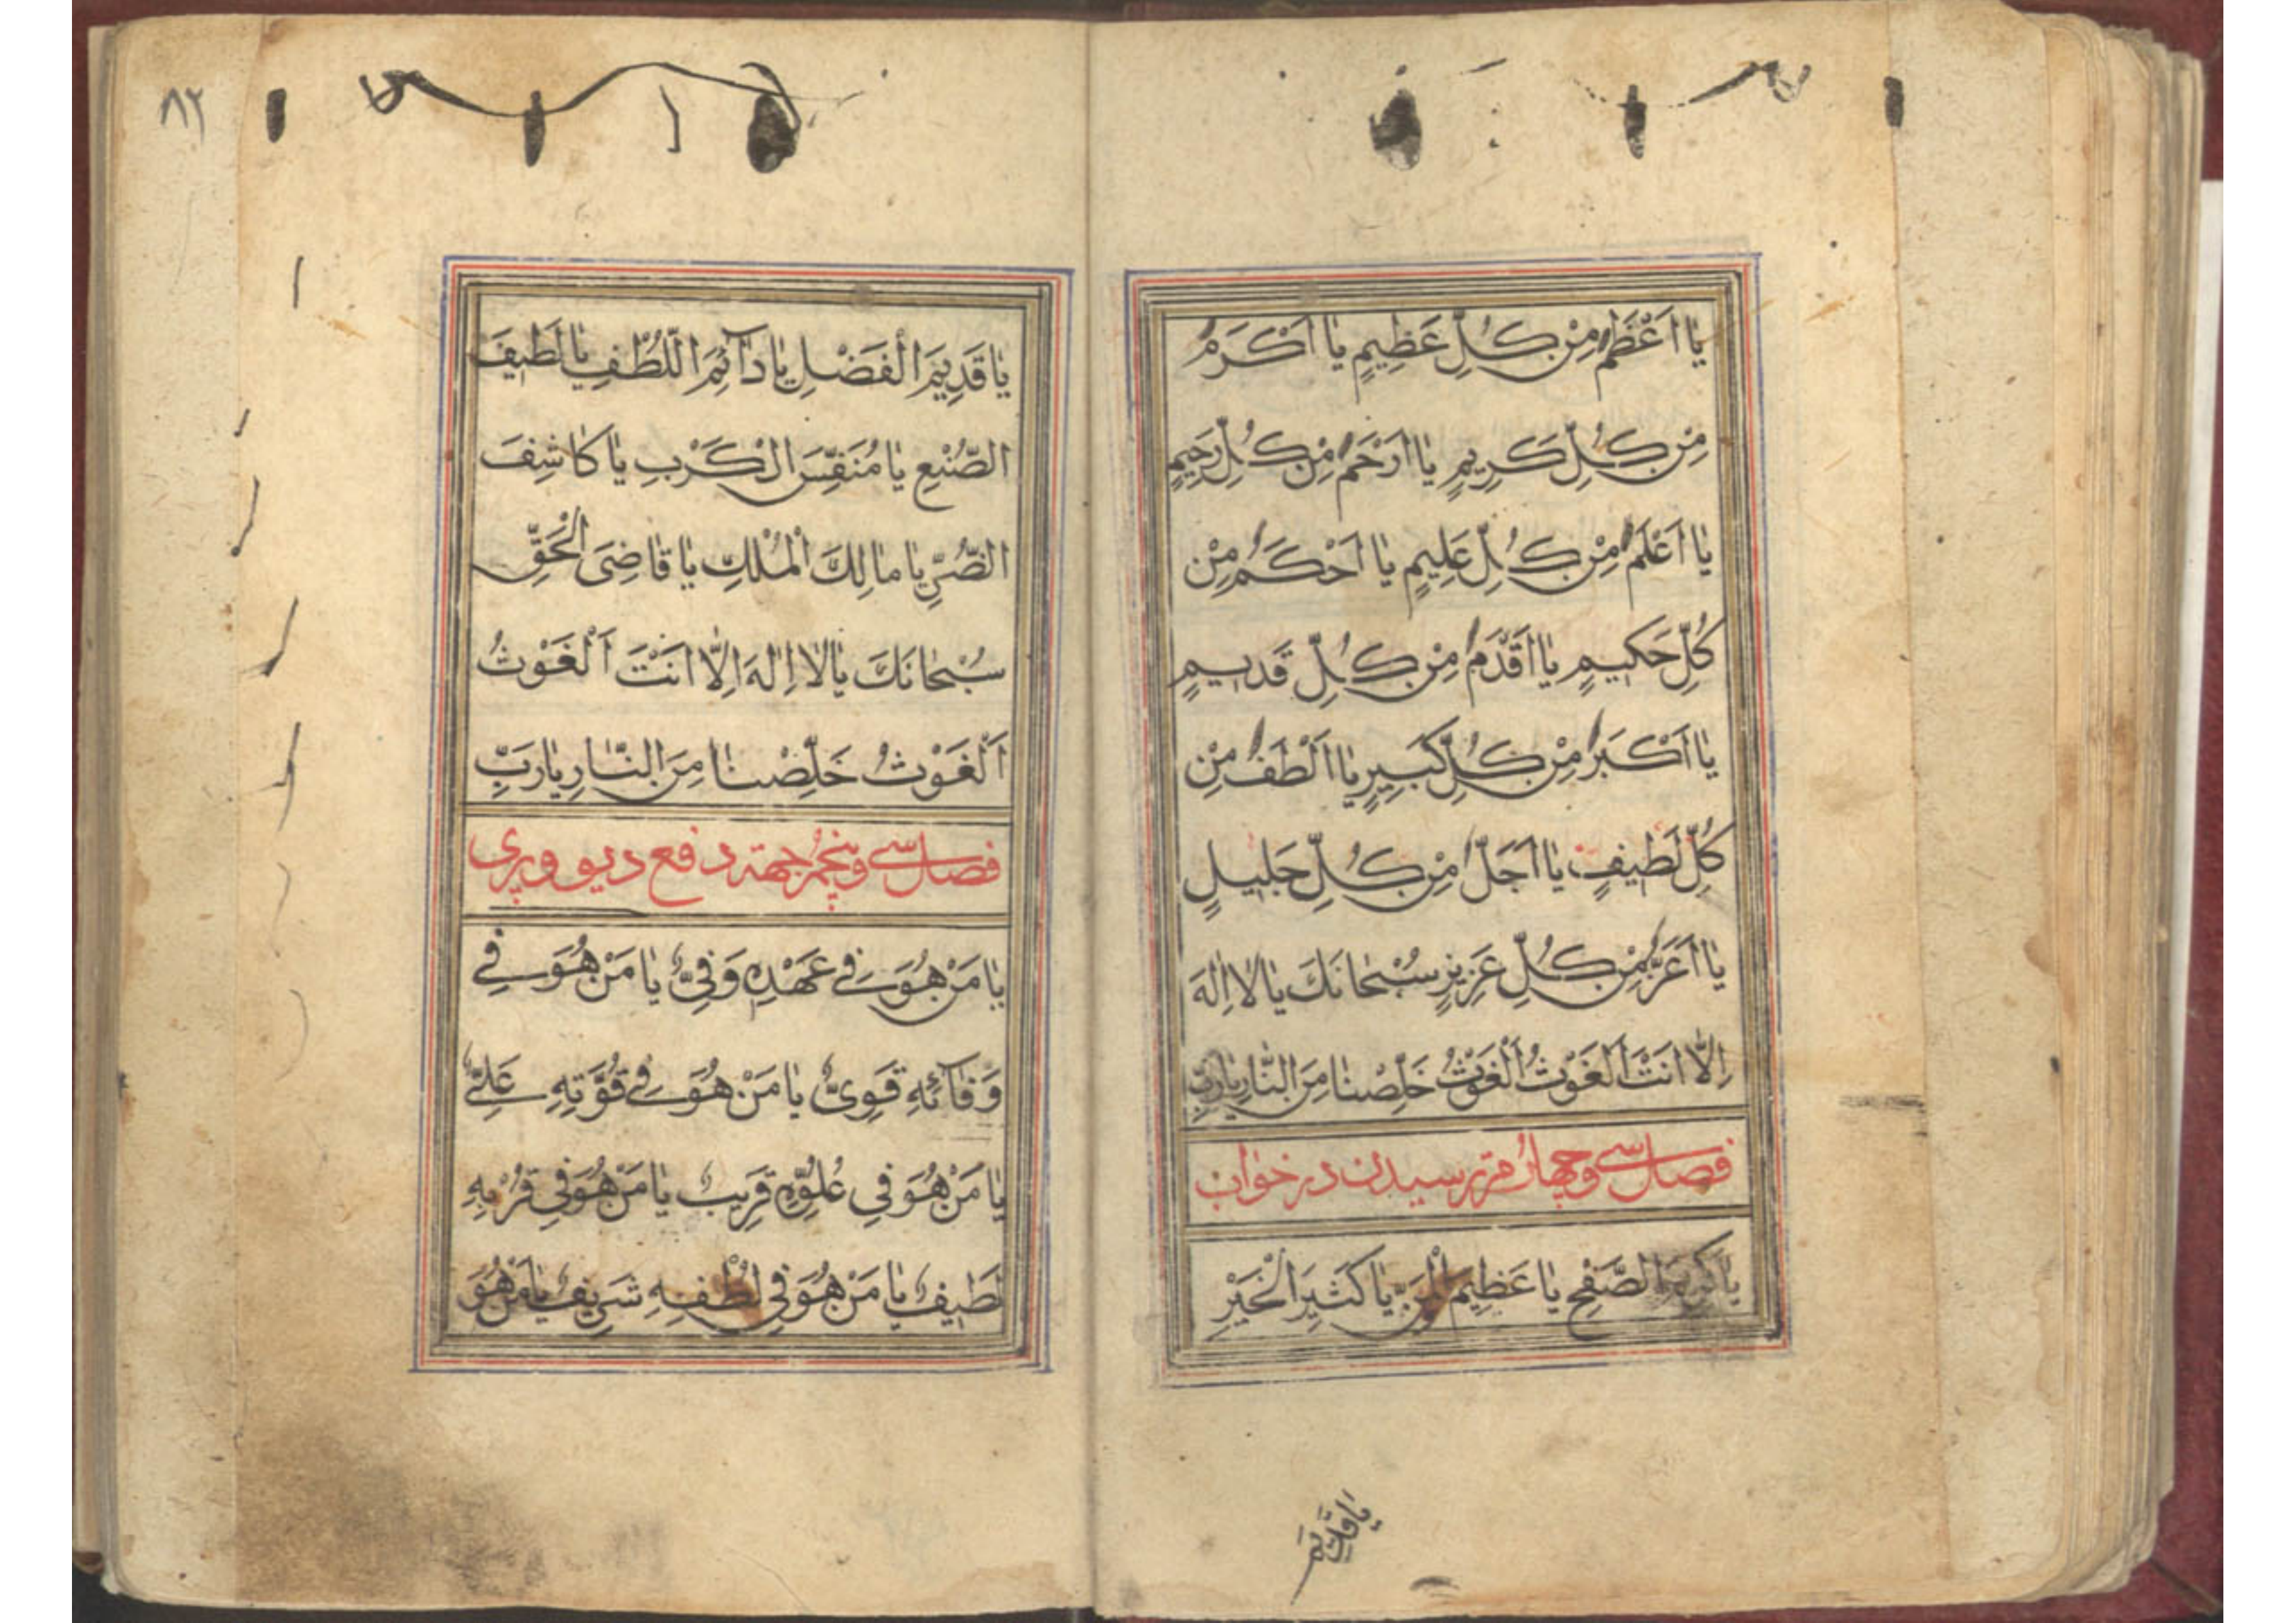 يٰا اَعْظَمُ مِنْ كُلِّ عَظِيمٍ يٰا اَكْرَمُ
مِنْ كُلِّ كَرِيمٍ يٰا اَرْحَمُ مِنْ كُلِّ رَحِيمٍ
يٰا اَعْلَمُ مِنْ كُلِّ عَلِيمٍ يٰا اَحْكَمُ مِنْ
كُلِّ حَكِيمٍ يٰا اَقْدَمُ مِنْ كُلِّ قَدِيمٍ
يٰا اَكْبَرُ مِنْ كُلِّ كَبِيرٍ يٰا اَلْطَفُ مِنْ
كُلِّ لَطِيفٍ يٰا اَجَلُّ مِنْ كُلِّ جَلِيلٍ
يٰا اَعَزُّ مِنْ كُلِّ عَزِيزٍ سُبْحٰانَكَ يٰا لٰا اِلٰهَ
اِلّٰا اَنْتَ اَلْغَوْثُ اَلْغَوْثُ خَلِّصْنٰا مِنَ النّٰارِ يٰارَبِّ
فصل سی و چهارم ترسیدن در خواب
يٰا كَرِيمَ الصَّفْحِ يٰا عَظِيمَ الْمَنِّ يٰا كَثِيرَ الْخَيْرِ
يٰا قَدِيمَ
٨٢
يٰا قَدِيمَ الْفَضْلِ يٰا دٰآئِمَ اللُّطْفِ يٰا لَطِيفَ
الصُّنْعِ يٰا مُنَفِّسَ الْكَرْبِ يٰا كٰاشِفَ
الضُّرِّ يٰا مٰالِكَ الْمُلْكِ يٰا قٰاضِىَ الْحَقِّ
سُبْحٰانَكَ يٰا لٰا اِلٰهَ اِلّٰا اَنْتَ اَلْغَوْثُ
اَلْغَوْثُ خَلِّصْنٰا مِنَ النّٰارِ يٰارَبِّ
فصل سی و پنجم جهته دفع دیو و پری
يٰا مَنْ هُوَ فِي عَهْدِهِ وَفِىٌّ يٰا مَنْ هُوَ فِي
وَفٰآئِهِ قَوِىٌّ يٰا مَنْ هُوَ فِي قُوَّتِهِ عَلِيٌّ
يٰا مَنْ هُوَ فِي عُلُوِّهِ قَرِيبٌ يٰا مَنْ هُوَ فِي قُرْبِهِ
لَطِيفٌ يٰا مَنْ هُوَ فِي لُطْفِهِ شَرِيفٌ يٰا مَنْ هُوَ